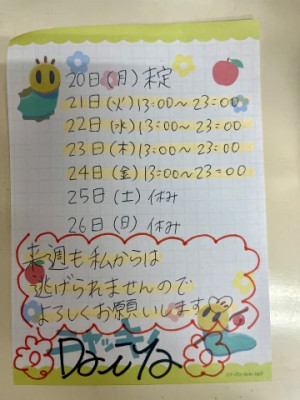 20日(月)未定
21日(火)13:00〜23:00
22日(水)13:00〜23:00
23日(木)13:00〜23:00
24日(金)13:00〜23:00
25日(土)休み
26日(日)休み
来週も私からは
逃げられませんので
よろしくお願いします
Daiya